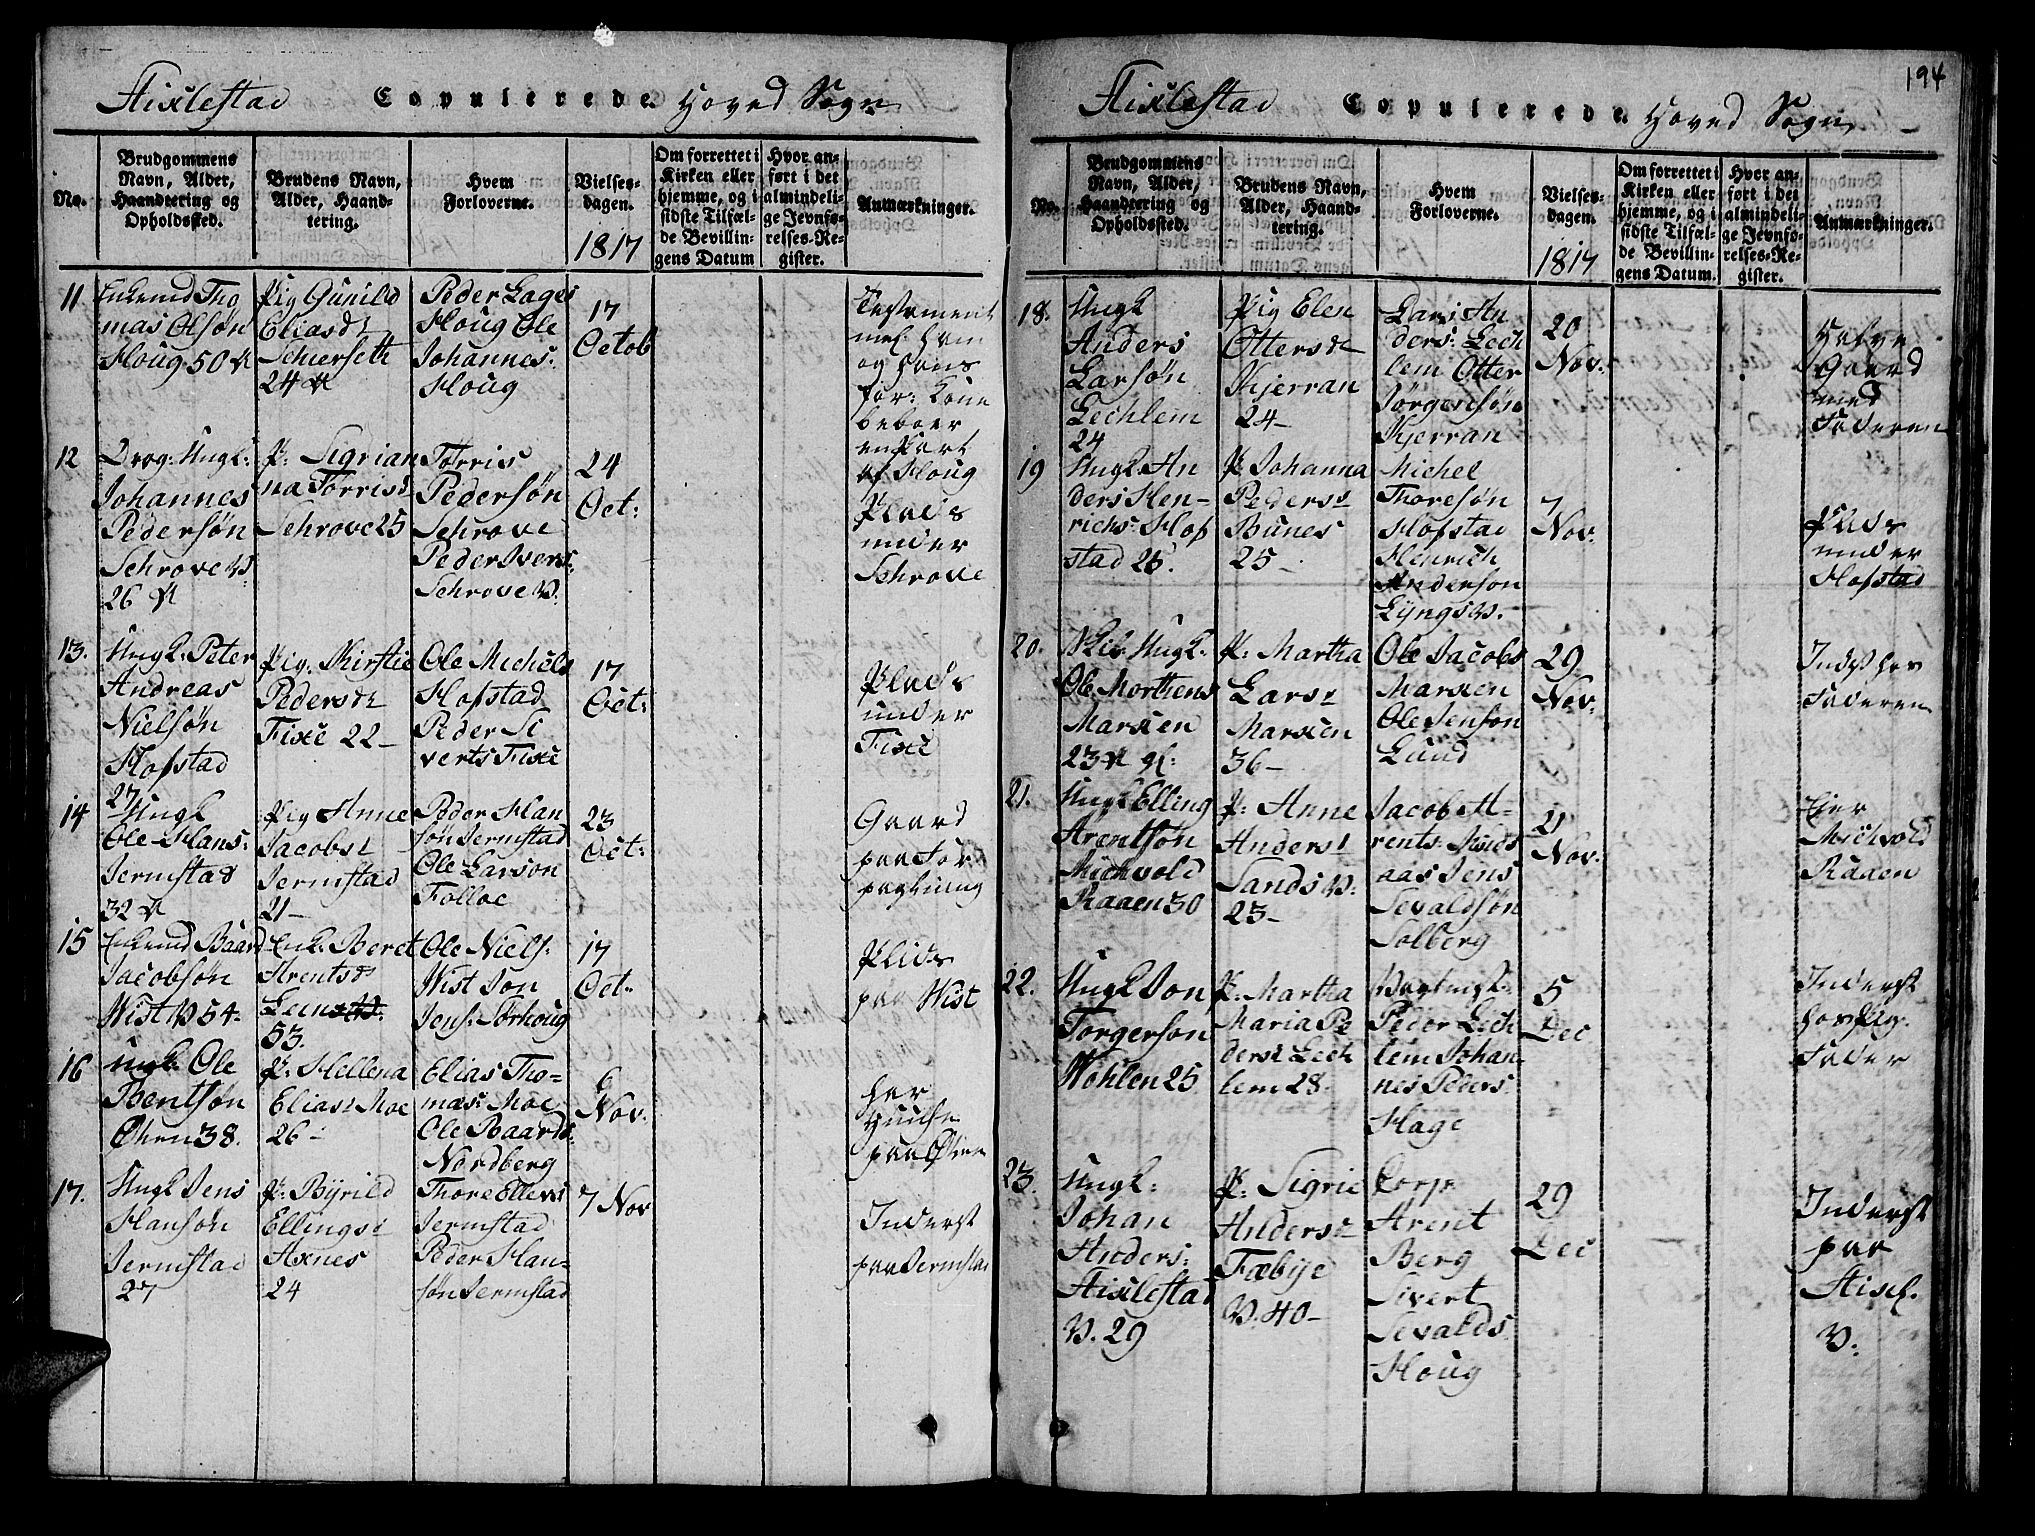 Stixlestad Copulerede Hoved Sogn
No.
Brudgommens
Navn, Alder,
Haandtering og
Opholdssted.
Brudens Navn,
Alder, Haand-
tering.
Hvem
Forloverne.
Vielses-
dagen.
1817
Om forrettet i
Kirken eller
hjemme, og i
sidste Tilfæl-
de Bevillin-
gens Datum
Hvor an-
ført i det
almindeli-
ge Jevnfø-
relses-Re-
gister.
Anmærkninger.
11
Enkemd Tho
mas Olsøn
Houg 50
Pig Gunild
Eliasdr
Schierseth
24
Peder Lages
Houg Ole
Johannes:
Houg
17
Octob
Testament
mel. ham
og hans
for: Kone
beboer
en Part
af Houg
12
Drag: Ungk:
Johannes
Pedersøn
Schrove V.
26
P: Sigrian
na Torrisd
Schrove 25
Torris
Pedersøn
Schrove
Peder Ivers:
Schrove V.
24
Oct:
Plads
under
Schrove
13.
Ungk: Peter
Andreas
Nielsøn
Hofstad
27
Pig. Kirstie
Pedersdr
Fixe 22-
Ole Michels
Hofstad
Peder Si
verts Fixe
17
Oct:
Plads
under
Fixe
14
Ungk
Ole Hans:
Jermstad
32
Pig Anne
Jacobsd
Jermstad
21-
Peder Han
søn Jermstad
Ole Larson
Folloe
23
Oct:
Gaard
paa For
pagtning
15
Enkemd Baard
Jacobsøn
Wist V 54-
Enk: Beret
Arentsd
Leins
53.
Ole Niels:
Wist Jon
Jens: Sørhoug
17
Oct.
Plads
paa Wist
16
Ungk. Ole
Bentsøn
Øhren 38.
P: Hellena
Eliasd Moe
26-
Elias Tho-
mæs: Moe
Ole Baards:
Nordberg
6
Nov:
her
Huuse
paa Øhren
17.
Ungk Jens
Hansøn
Jermstad
27
P: Byrild
Ellingsd
Axnes
24
Thore Ellevs
Jermstad
Peder Han-
søn Jermstad
7 Nov
Inderst
paa Jermstad
194
Stixlestad Copulerede Hoved Sogn
No.
Brudgommens
Navn, Alder,
Haandtering og
Opholdssted.
Brudens Navn,
Alder, Haand-
tering.
Hvem
Forloverne.
Vielses-
dagen.
1817
Om forrettet i
Kirken eller
hjemme, og i
sidste Tilfæl-
de Bevillin-
gens Datum.
Hvor an-
ført i det
almindeli-
ge Jevnfø-
relses-Re-
gister.
Anmærkninger.
18.
Ungk
Anders
Larsøn
Lechlem
24
Pig Elen
Ottersdr
Kjerran
24-
Lars An
ders: Lech
lem Otter
Jørgensøn
Kjerran
20
Nov:
Halve
Gaard
med
Faderen
19
Ungk An
ders Hen-
richs: Hof
stad 25.
P. Johanna
Pedersd
Bünes
25-
Michel
Thoresøn
Hofstad
Henrich
Anderson
Lÿngs V.
7
Nov:
Plads
under
Hofstad
20.
Ungk.
Ole Morthens
Marxen
23
P: Martha
Larsd
Marxen
36-
Ole Jacobs
Marxen
Ole Jensøn
Lund
29
Nov:
Indst hos
Faderen
21.
Ungk Elling
Arentsøn
Michvold
Raaen 30
P: Anne
Andersd
Sands V:
23-
Jacob A-
rents:
aas Jens
Sevaldsøn
Solberg
21
Nov:
Eier
Michvold
Raaen
22.
Ungk Jon
Torgerson
Wohlen 25
P: Martha
Maria Pe
dersd Lech
lem 28.
Vagtmst:
Peder Lech
lem Johan
nes Peders:
Hage
5
Dec
Inderst
hos Pig.
Fader
23.
Ungk:
Johan
Anders:
Stixlestad
V. 29
P: Sigrie
Andersdr
Fæbye
V. 40-
Corp
Arent
Berg
Sivert
Sevalds
Houg
29
Dec
Inderst
paa
Stixl.
V: